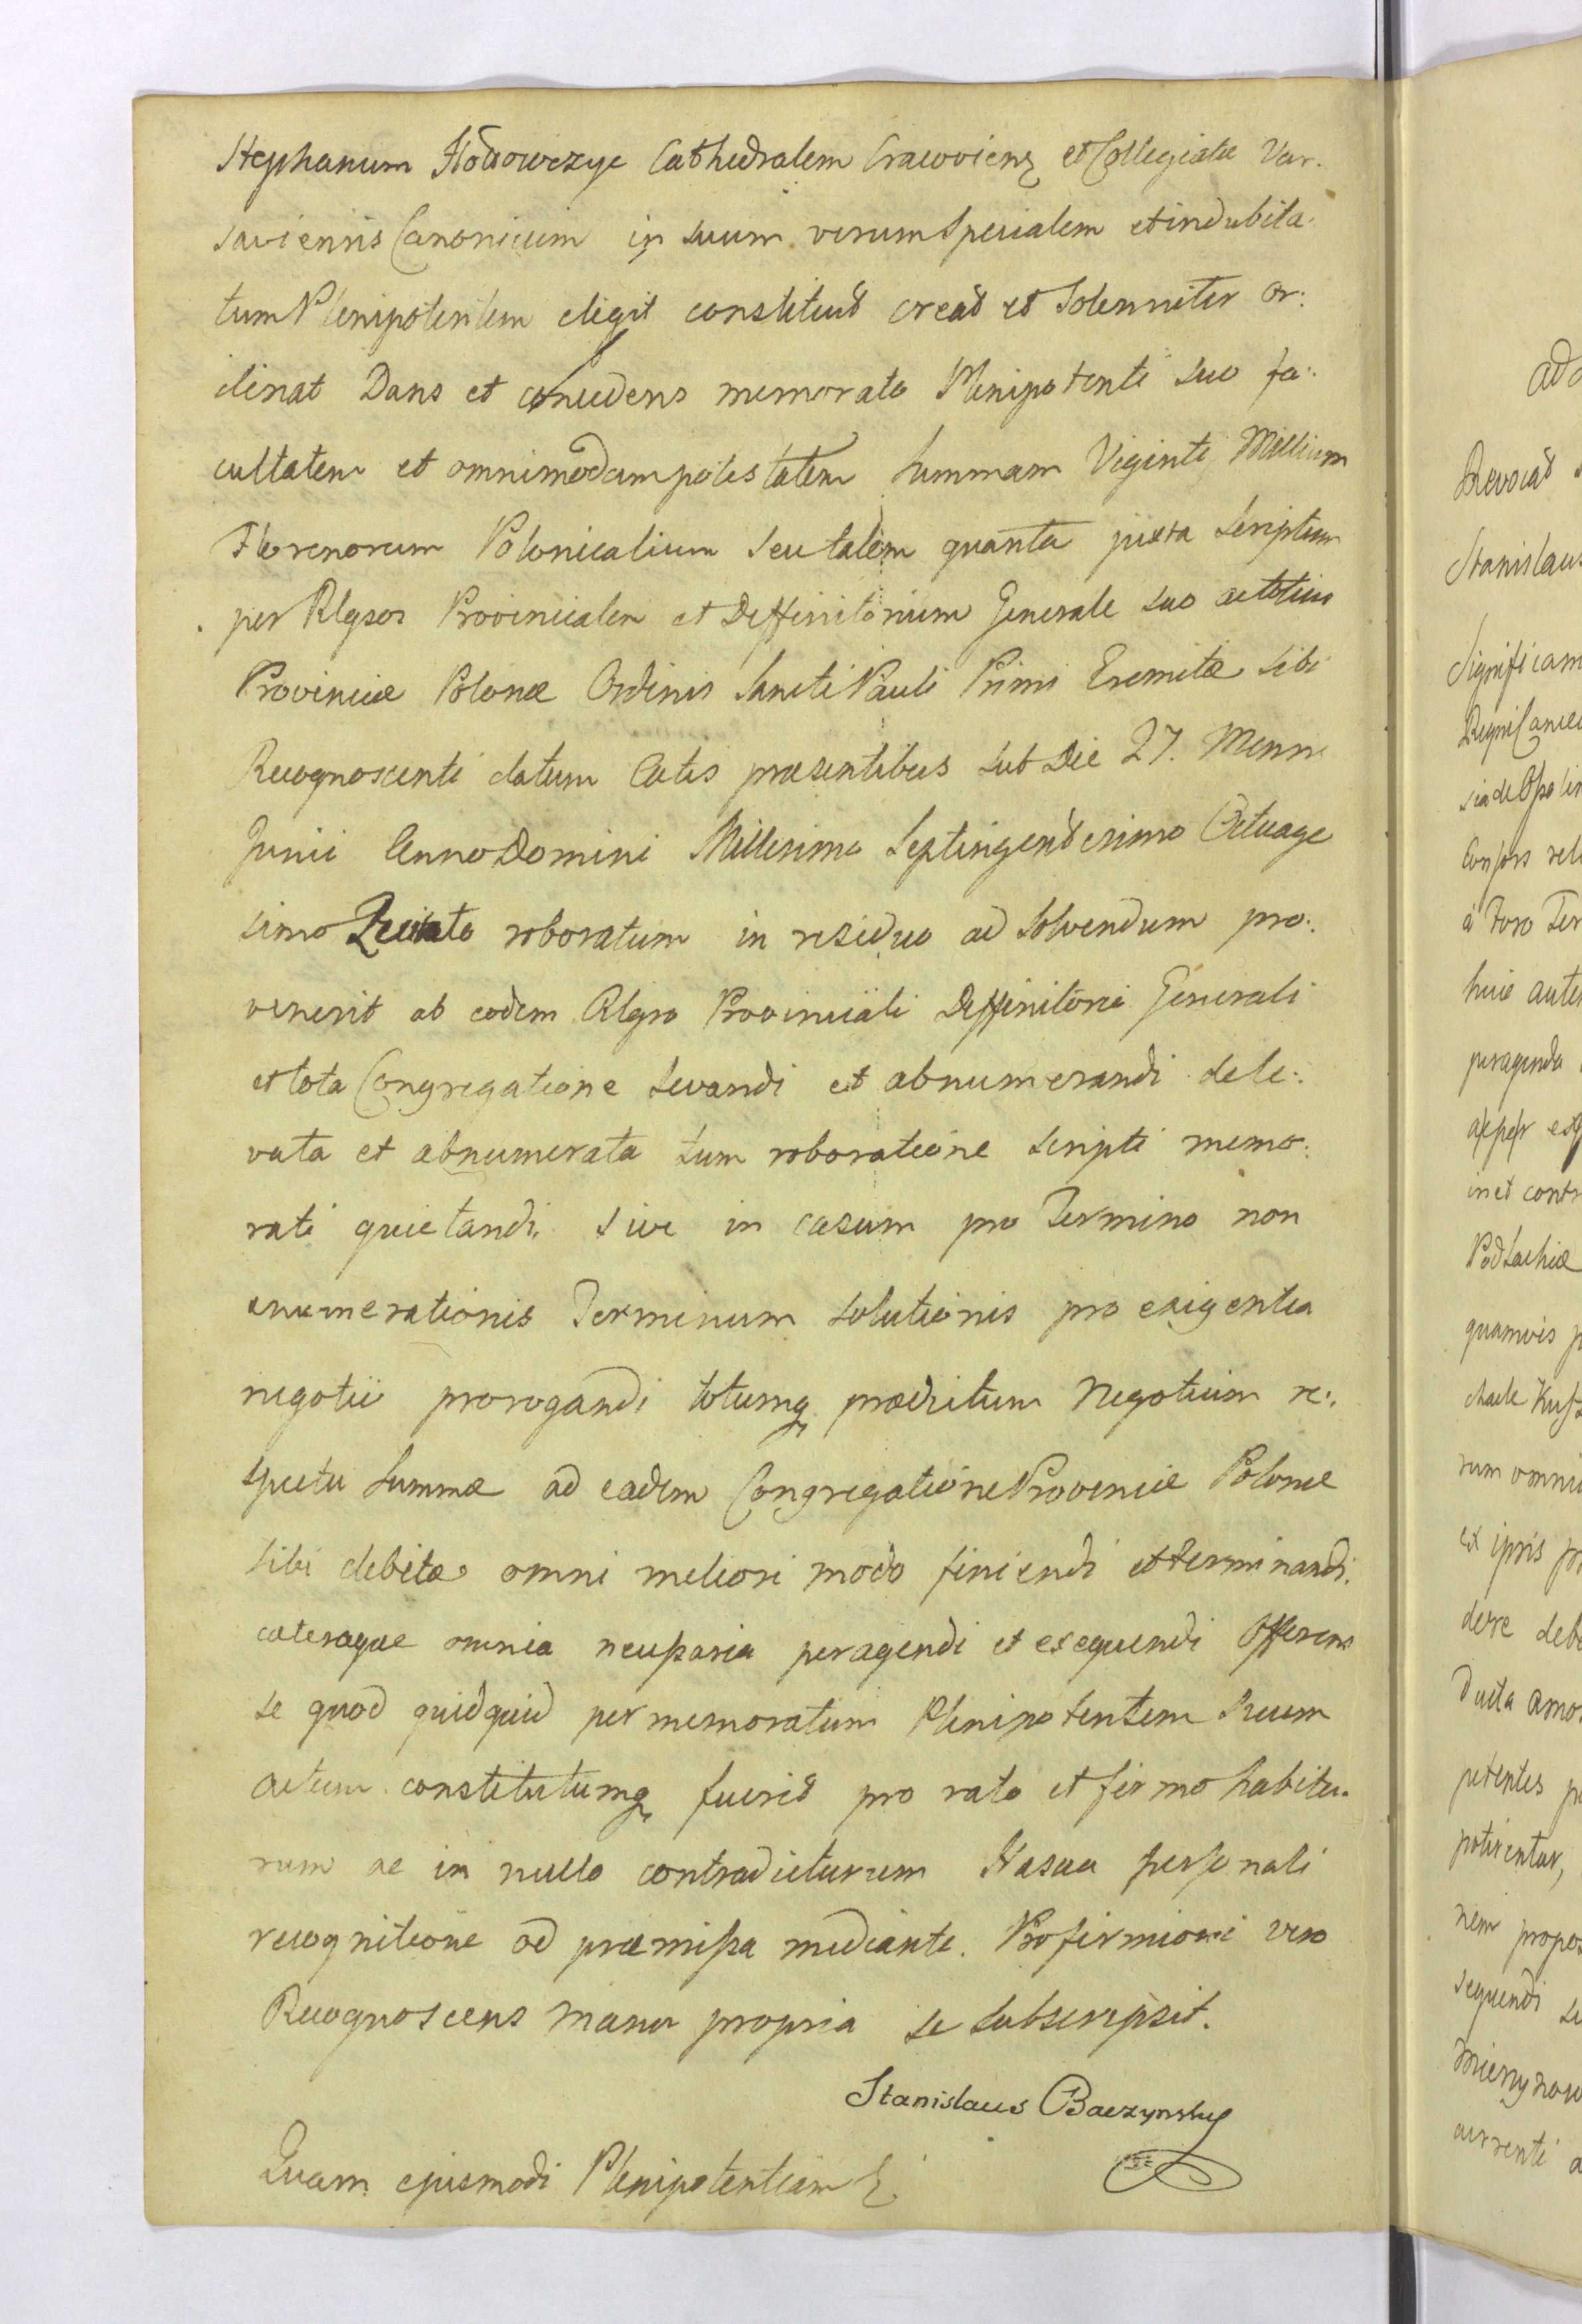 Stephanum Hołowczyc Cathedralem Cracovienς et Collegiatæ Var.
saviensis Canonicum in suum verum Specialem et indubita
tum Plenipotentem elegit constituit creat et Solenniter or:
dinat Dans et concedens memorato Plenipotenti suo fa:
cultatem et omnimodam potestatem Summam Viginti Millium
Florenorum Polonicalium seu talem quanta juxta Scriptum
per Rlgsos Provincialem et Deffinitorium Generale suo ac totius
Provinciæ Polonæ Ordinis Sancti Pauli Primi Eremitæ sibi
Recognoscenti datum Actis præsentibus sub Die 27. Mensis
Junii Anno Domini Millesimo Septingentesimo Octuage
simo Quinto roboratum in residuo ad solvendum pro:
venerit ab eodem Rlgso Provinciali Deffinitorio Generali
et tota Congregatione levandi et abnumerandi dele:
vata et abnumerata cum roboratione scripti memo:
rati quietandi, sive in casum pro Termino non
enumerationis Terminum solutionis pro exigentia
negotii prorogandi totumq prædictum Negotium re:
spectu Summæ ad eadem Congregatione Provinciæ Polonæ
sibi debitæ omni meliori modo finiendi et terminandi.
cæteraque omnia necessaria peragendi et exequendi Offerens
se quod quidquid per memoratum Plenipotentem suum
actum constitutumq fuerit pro rato et firmo habitu.
rum ac in nullo contradicturum Hasua personali
recognitione ad præmissa mediante. Pro firmiori vero
Recognoscens manu propria se subscripsit.
Stanislaus Baczynsky
Quam ejusmodi Plenipotentiam
Revocat
Stanislaus
Regni Cance
à Foro Ter
peragenda
in et contr
Podlachiæ
quamvis p
rum omni
ex ipsis pr
dere deb
ducta amo
petentes p
potirentur,
nem propo
sequendi se